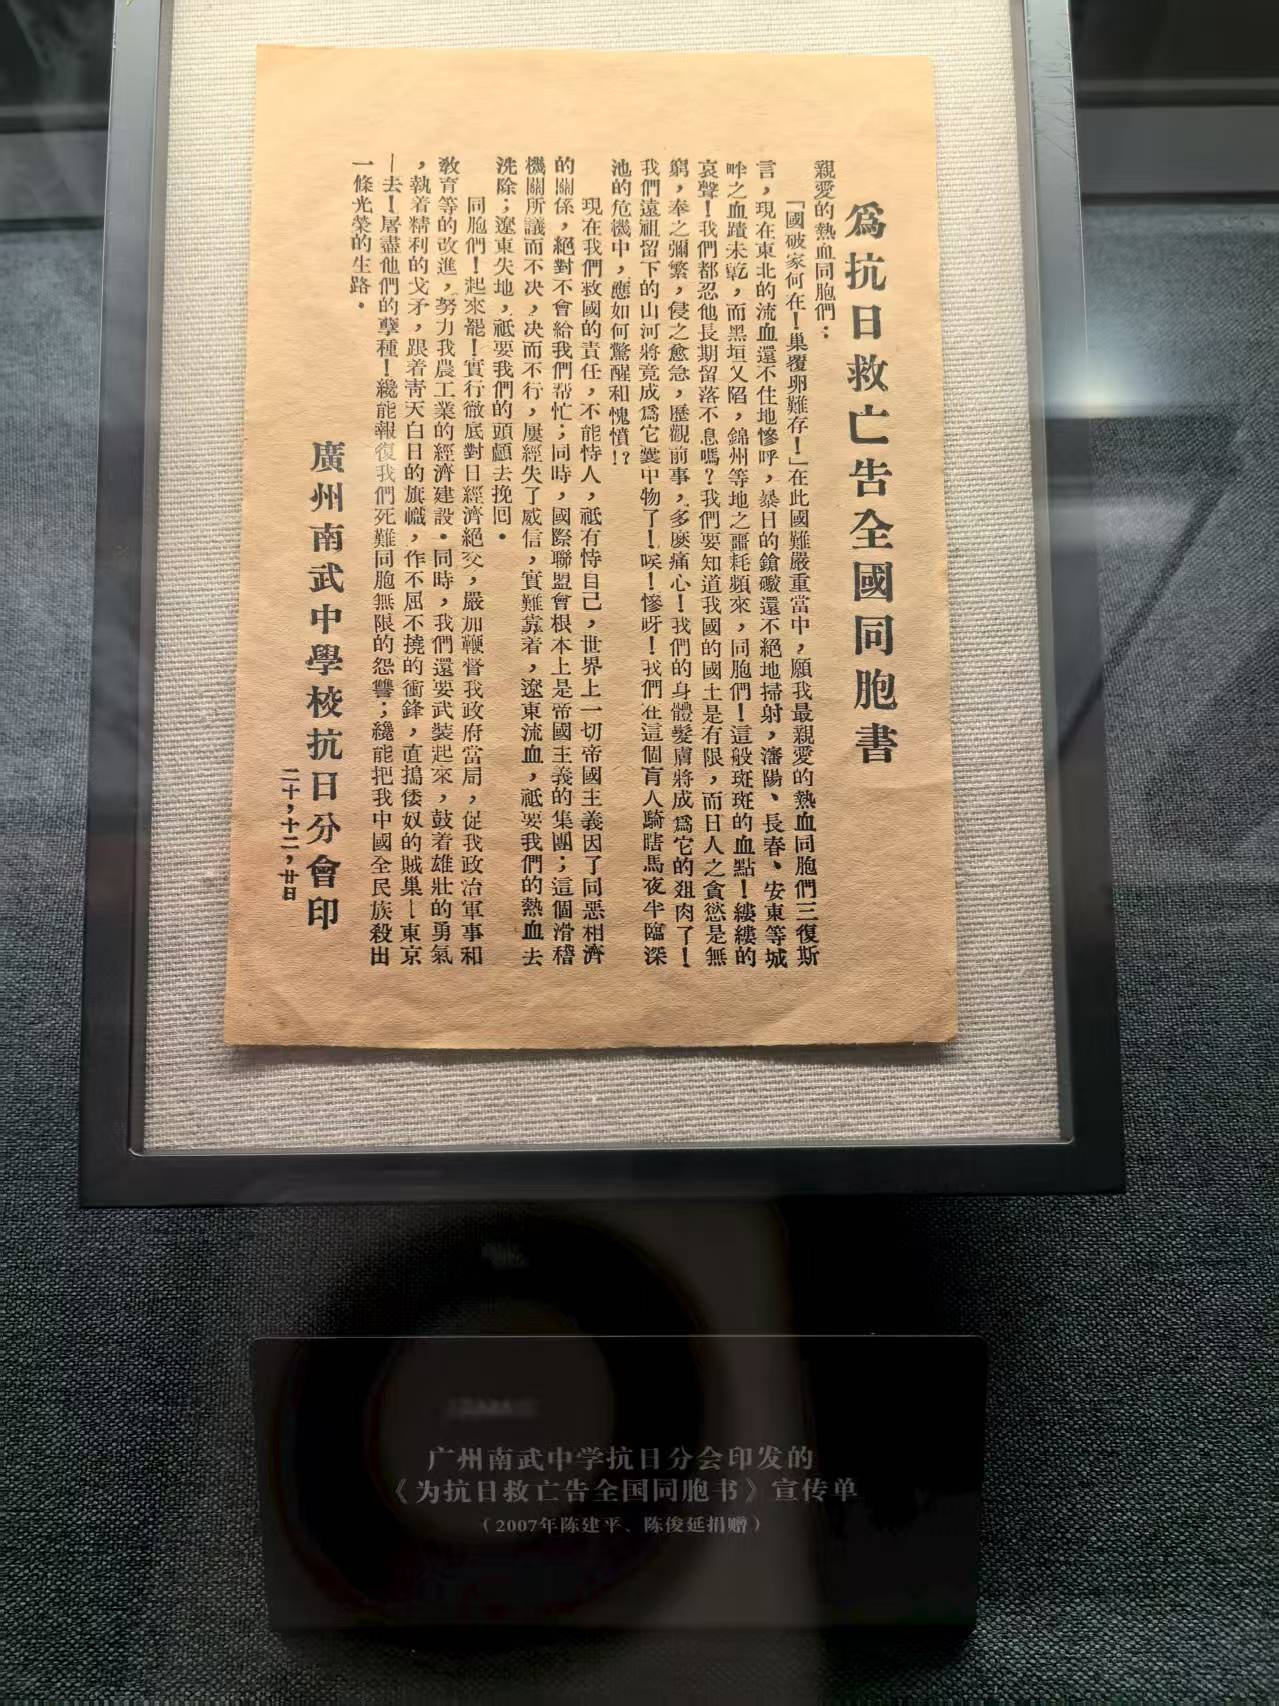 爲抗日救亡告全國同胞書
親愛的熱血同胞們：
「國破家何在！巢覆卵難存！」在此國難嚴重當中，願我最親愛的熱血同胞們三復斯
言，現在東北的流血還不住地慘呼，暴日的鎗礮還不絕地掃射，瀋陽、長春、安東等城
咔之血蹟未乾，而黑垣又陷，錦州等地之噩耗頻來，同胞們！這般斑斑的血點！縷縷的
哀聲！我們都忍他長期留落不息嗎？我們要知道我國的國土是有限，而日人之貪慾是無
窮，奉之彌繁，侵之愈急，歷觀前事，多麽痛心！我們的身體髮膚將成爲它的爼肉了！
我們遠祖留下的山河將竟成爲它囊中物了！唉！慘呀！我們在這個盲人騎瞎馬夜半臨深
池的危機中，應如何驚醒和愧憤！？
現在我們救國的責任，不能恃人，祗有恃自己，世界上一切帝國主義因了同惡相濟
的關係，絕對不會給我們帮忙；同時，國際聯盟會根本上是帝國主義的集團；這個滑稽
機關所議而不决，决而不行，屢經失了威信，實難靠着，遼東流血，祗要我們的熱血去
洗除；遼東失地，祗要我們的頭顱去挽囘。
同胞們！起來罷！實行徹底對日經濟絕交，嚴加鞭督我政府當局，促我政治軍事和
敎育等的改進，努力我農工業的經濟建設。同時，我們還要武裝起來，鼓着雄壯的勇氣
，執着精利的戈矛，跟着靑天白日的旗幟，作不屈不撓的衝鋒，直搗倭奴的賊巢—東京
—去！屠盡他們的孽種！纔能報復我們死難同胞無限的怨讐；纔能把我中國全民族殺出
一條光榮的生路。
廣州南武中學校抗日分會印
二十，十二，廿日
广州南武中学抗日分会印发的
《为抗日救亡告全国同胞书》宣传单
（2007年陈建平、陈俊延捐赠）